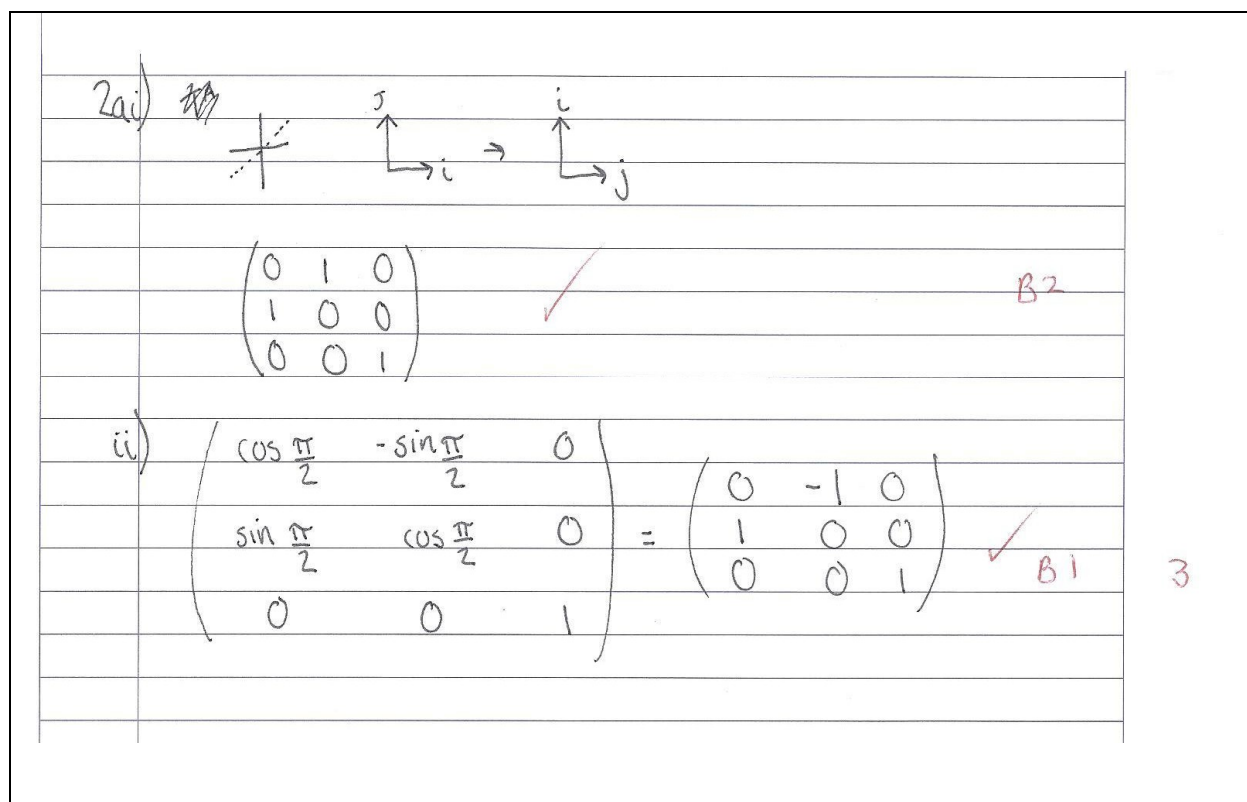 2ai)
J i → i j
( 0 1 0
1 0 0
0 0 1 ) ✓ B2
ii) ( cos π/2 -sin π/2 0
sin π/2 cos π/2 0
0 0 1 ) = ( 0 -1 0
1 0 0
0 0 1 ) ✓ B1 3